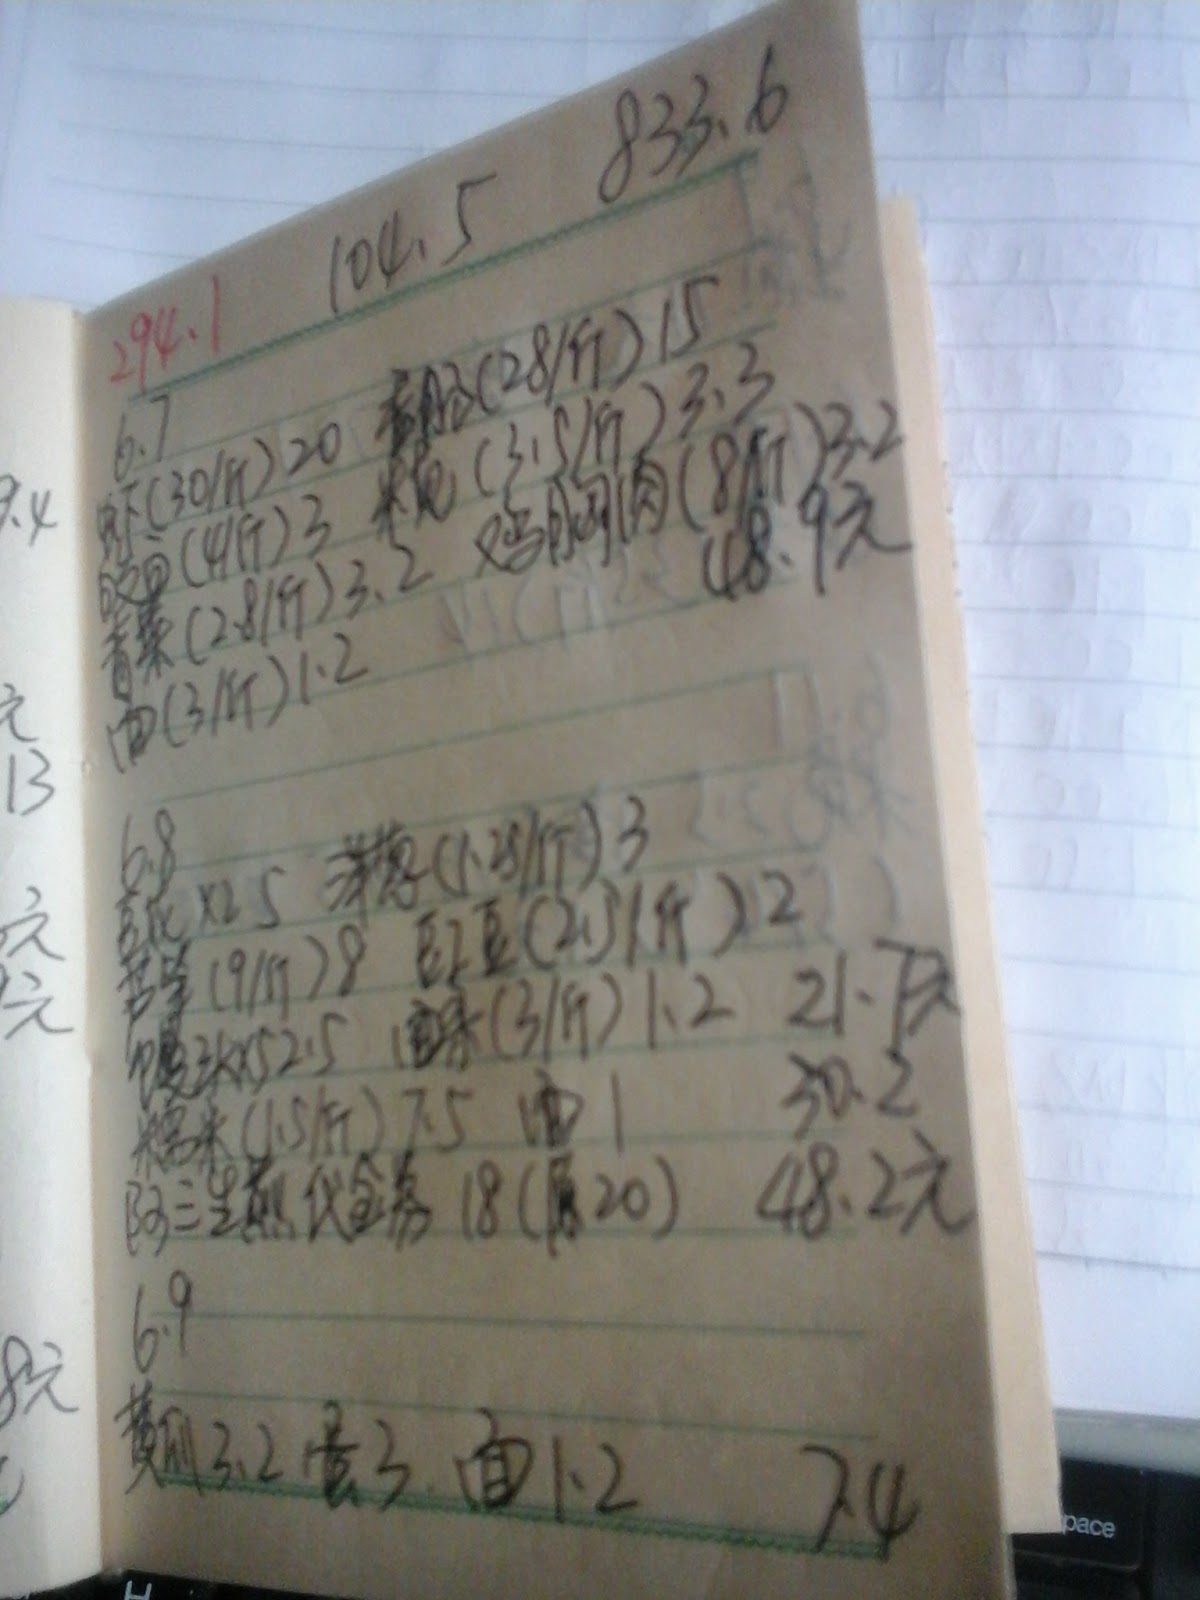 294.1 104.5 833.6
6.7
虾(30/斤)20 (28/斤)15
(4/斤)3 (3.5/斤)3.3
青菜(2.8/斤)3.2 鸡胸肉(8/斤)3.2
面(3/斤)1.2 48.9元
6.8
豆花x2 5 洋葱(1.28/斤)3
(9/斤)8 豇豆(2.5/斤)2
x5 2.5 (3/斤)1.2 21.7元
米(1.5/斤)7.5 面1 30.2
阿三生煎代金券 18(原20) 48.2元
6.9
黄瓜3.2 蛋3 面1.2 7.4
9.4
元
13
元
元
8元
space
H